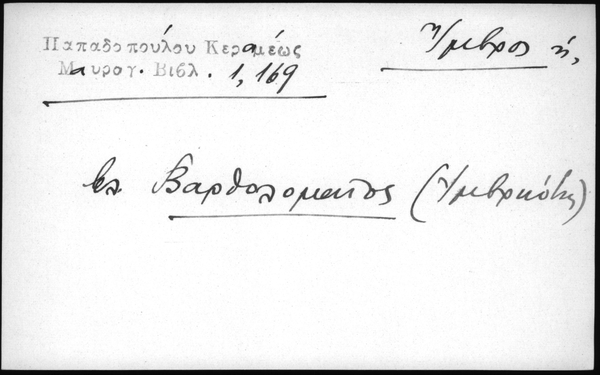 Παπαδοπούλου Κεραμέως
Μαυρογ. Βιβλ. 1,169
Ἴμβρος ἡ,
βλ. Βαρθολομαῖος (Ἰμβριώτης)